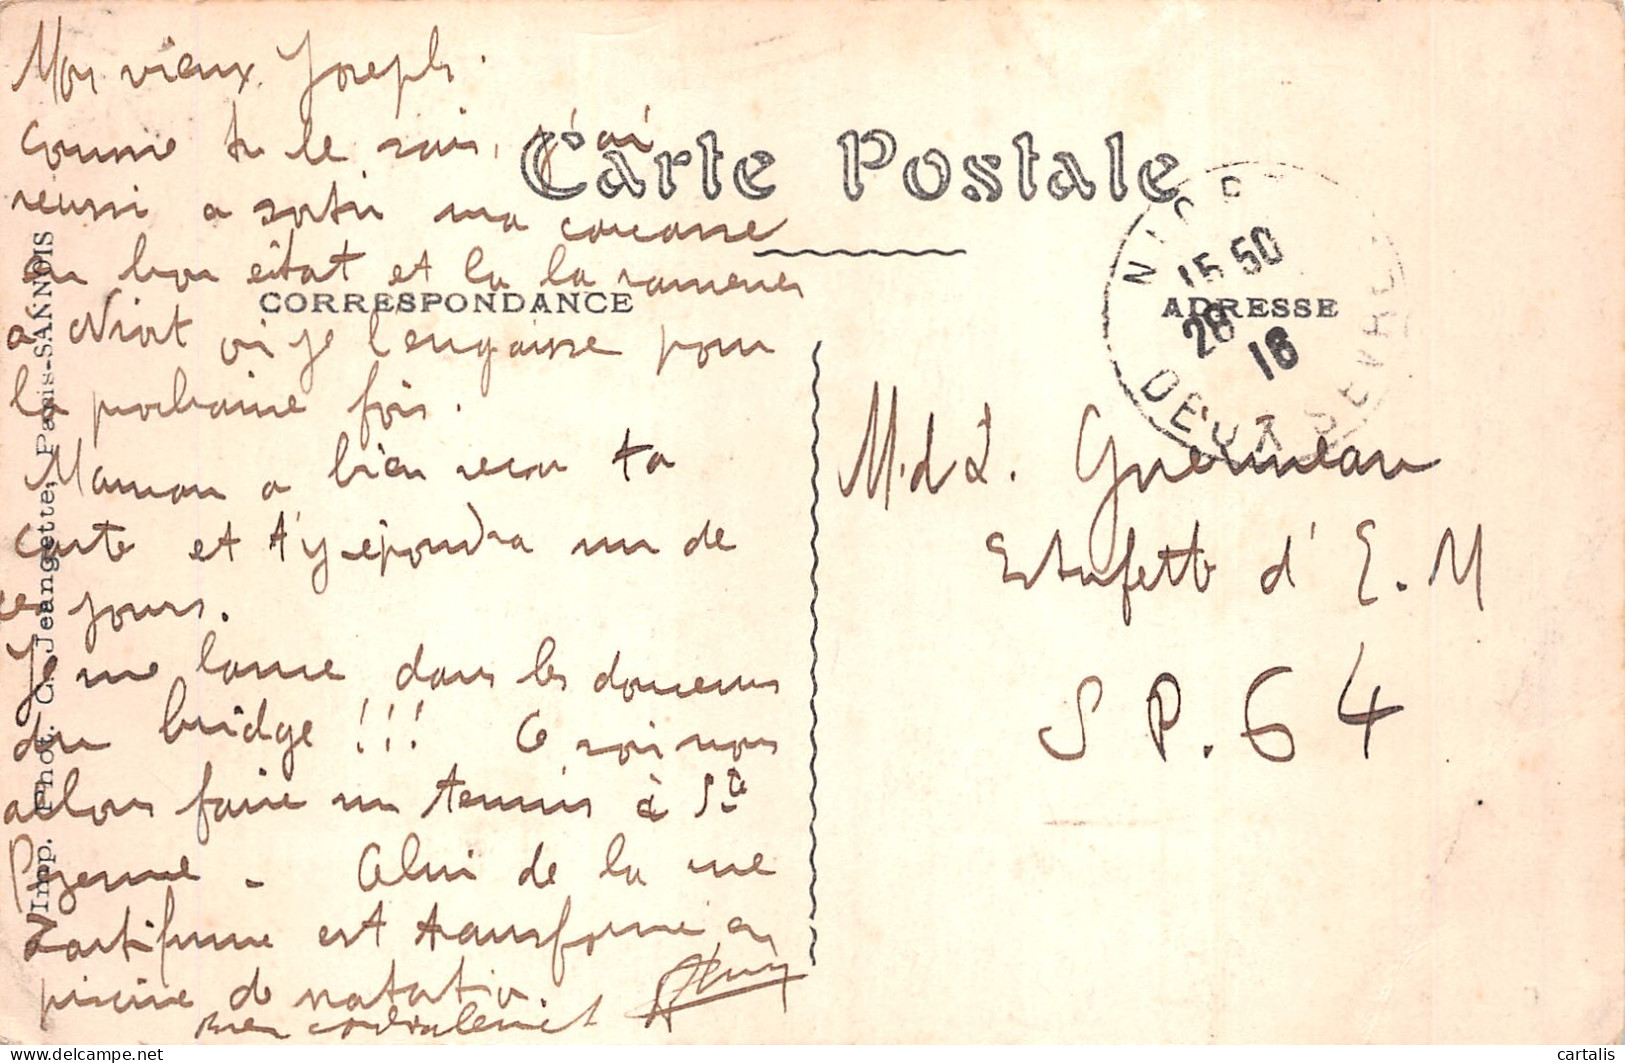 Mon vieux Joseph.
Comme tu le sais, j'ai
reussi a sortir ma
en bon état et la la ramener
a Niort où je l'engraisse pour
la prochaine fois.
Maman a bien recu ta
carte et t'y repondra un de
ces jours.
Je me lance dans les douceurs
du bridge !!! Ce soir nous
allons faire un tennis à Ste
Pezenne - Celui de la rue
est transforme en
piscine de natation
bien cordialement Henry
Carte Postale
CORRESPONDANCE
ADRESSE
NIORT
15 50
28
16
DEUX SEVRES
M.d.L. Guerineau
Estafette d'E.M
S P. 64
Imp. Phot. C. Jeangette, Paris-SANNOIS
cartalis